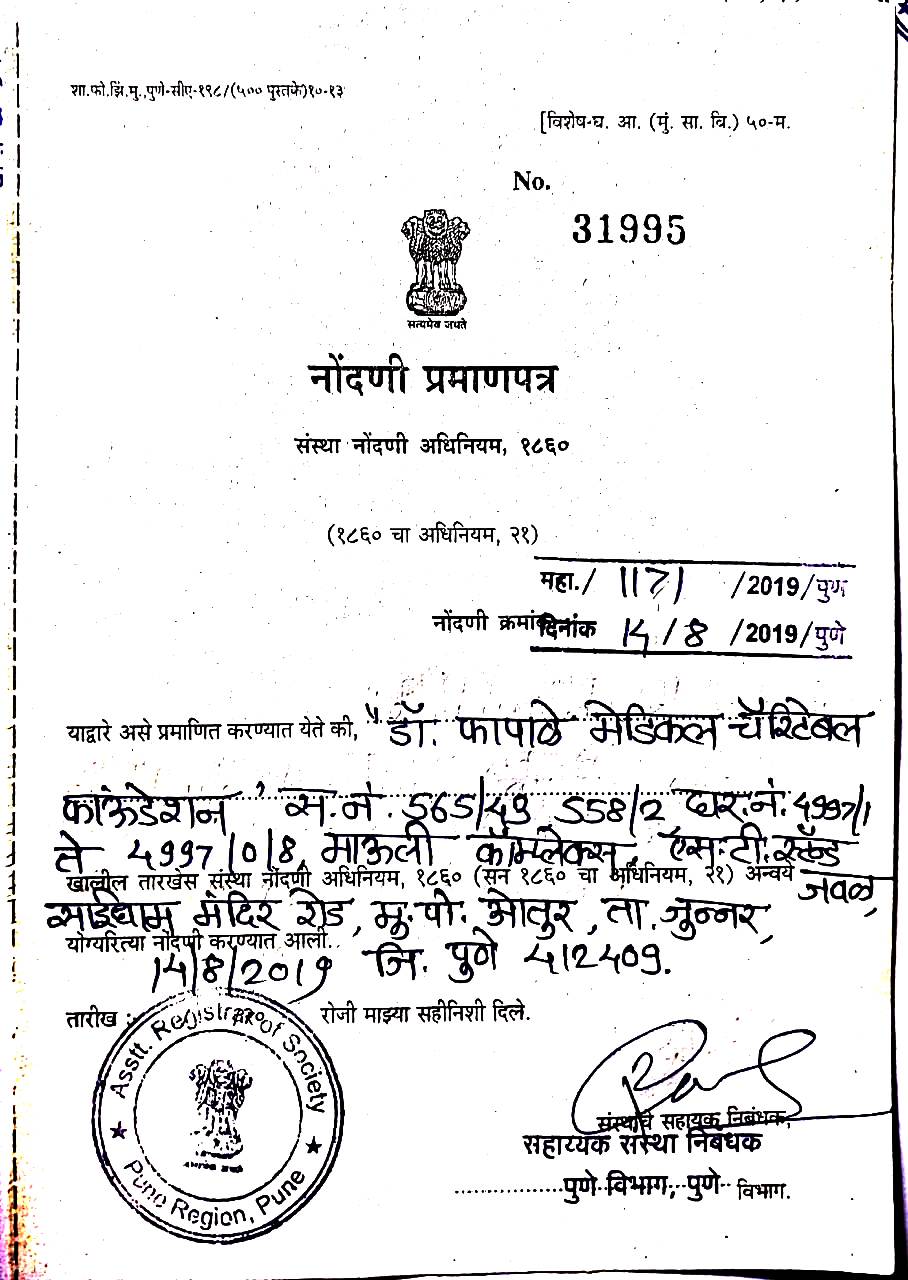 शा.फो.झिं.मु.,पुणे-सीए-१९८/(५०० पुस्तके)१०-१३
[विशेष-घ. आ. (मुं. सा. वि.) ५०-म.
No.
31995
सत्यमेव जयते
नोंदणी प्रमाणपत्र
संस्था नोंदणी अधिनियम, १८६०
(१८६० चा अधिनियम, २१)
महा./ 1171 /2019/पुणे
नोंदणी क्रमांक दिनांक 14/8 /2019/पुणे
याद्वारे असे प्रमाणित करण्यात येते की, "डॉ. फापाळे मेडिकल चॅरिटेबल
फांऊडेशन" स.नं. 565/49 558/2 घर.नं. 4997/1
ते 4997/0/8, माऊली कॉम्प्लेक्स, एस.टी.स्टॅन्ड
खालील तारखेस संस्था नोंदणी अधिनियम, १८६० (सन १८६० चा अधिनियम, २१) अन्वये जवळ,
साईधाम मंदिर रोड, मु.पो. ओतुर, ता. जुन्नर,
योग्यरित्या नोंदणी करण्यात आली.
14/8/2019 जि. पुणे 412409.
तारीख : रोजी माझ्या सहीनिशी दिले.
Asstt. Registrar of Society
Pune Region, Pune
संस्थांचे सहायक निबंधक,
सहाय्यक संस्था निबंधक
पुणे विभाग, पुणे विभाग.